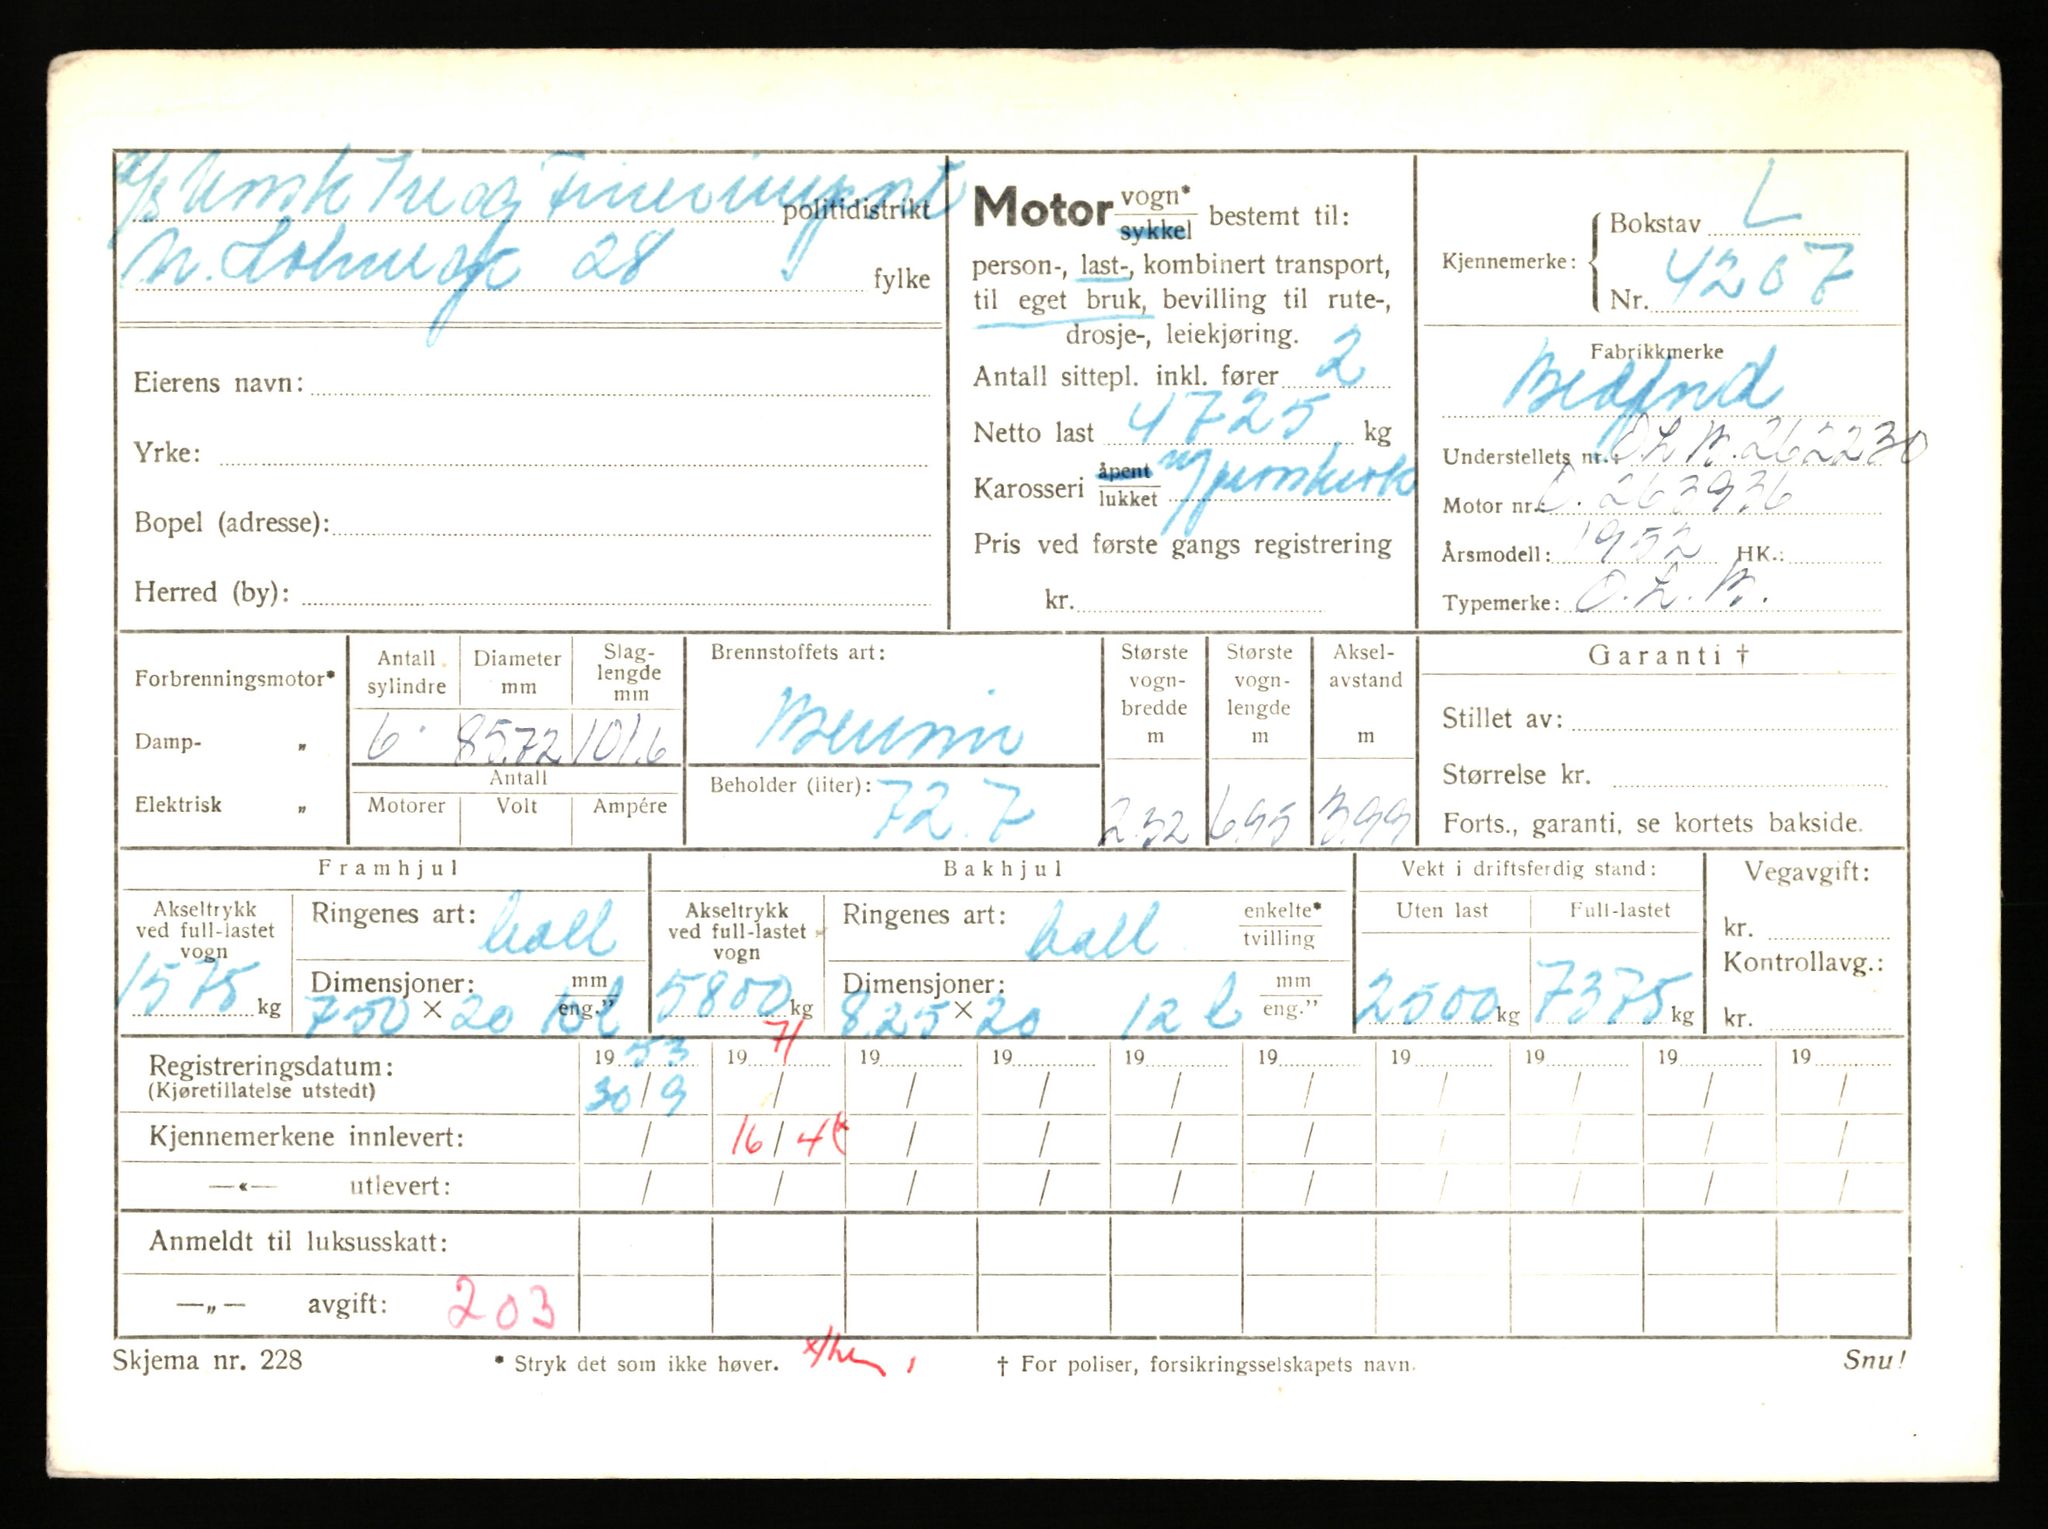 A/S Norsk Tre og Finerimport
politidistrikt
N. Holmegt 28
fylke
Eierens navn:
Yrke:
Bopel (adresse):
Herred (by):
Motor vogn* / sykkel bestemt til:
person-, last-, kombinert transport,
til eget bruk, bevilling til rute-,
drosje-, leiekjøring.
Antall sittepl. inkl. fører 2
Netto last 4725 kg
Karosseri åpent / lukket
Pris ved første gangs registrering
kr.
Kjennemerke: Bokstav L
Nr. 4207
Fabrikkmerke
Bedford
Understellets nr.: O.L.W. 262230
Motor nr. O. 263936
Årsmodell: 1952 HK.:
Typemerke: O.L.W.
Forbrenningsmotor*
Damp- „
Elektrisk „
Antall sylindre 6
Diameter mm 85.72
Slag-lengde mm 101.6
Antall
Motorer Volt Ampére
Brennstoffets art:
Bensin
Beholder (liter): 72.7
Største vogn-bredde m 2.32
Største vogn-lengde m 6.95
Aksel-avstand m 3.99
Garanti †
Stillet av:
Størrelse kr.
Forts., garanti, se kortets bakside.
Framhjul
Akseltrykk ved full-lastet vogn 1575 kg
Ringenes art: ball
Dimensjoner: 750 × 20 10 l mm / eng."
Bakhjul
Akseltrykk ved full-lastet vogn 5800 kg
Ringenes art: ball enkelte* / tvilling
Dimensjoner: 825 × 20 12 l mm / eng."
Vekt i driftsferdig stand:
Uten last 2500 kg
Full-lastet 7375 kg
Vegavgift:
kr.
Kontrollavg.:
kr.
Registreringsdatum: 19 53 19 71 19 19 19 19 19 19 19 19
(Kjøretillatelse utstedt) 30/9 / / / / / / / / /
Kjennemerkene innlevert: / 16/4 x / / / / / / / /
—«— utlevert: / / / / / / / / / /
Anmeldt til luksusskatt:
—„— avgift: 203
Skjema nr. 228
* Stryk det som ikke høver.
† For poliser, forsikringsselskapets navn.
Snu!